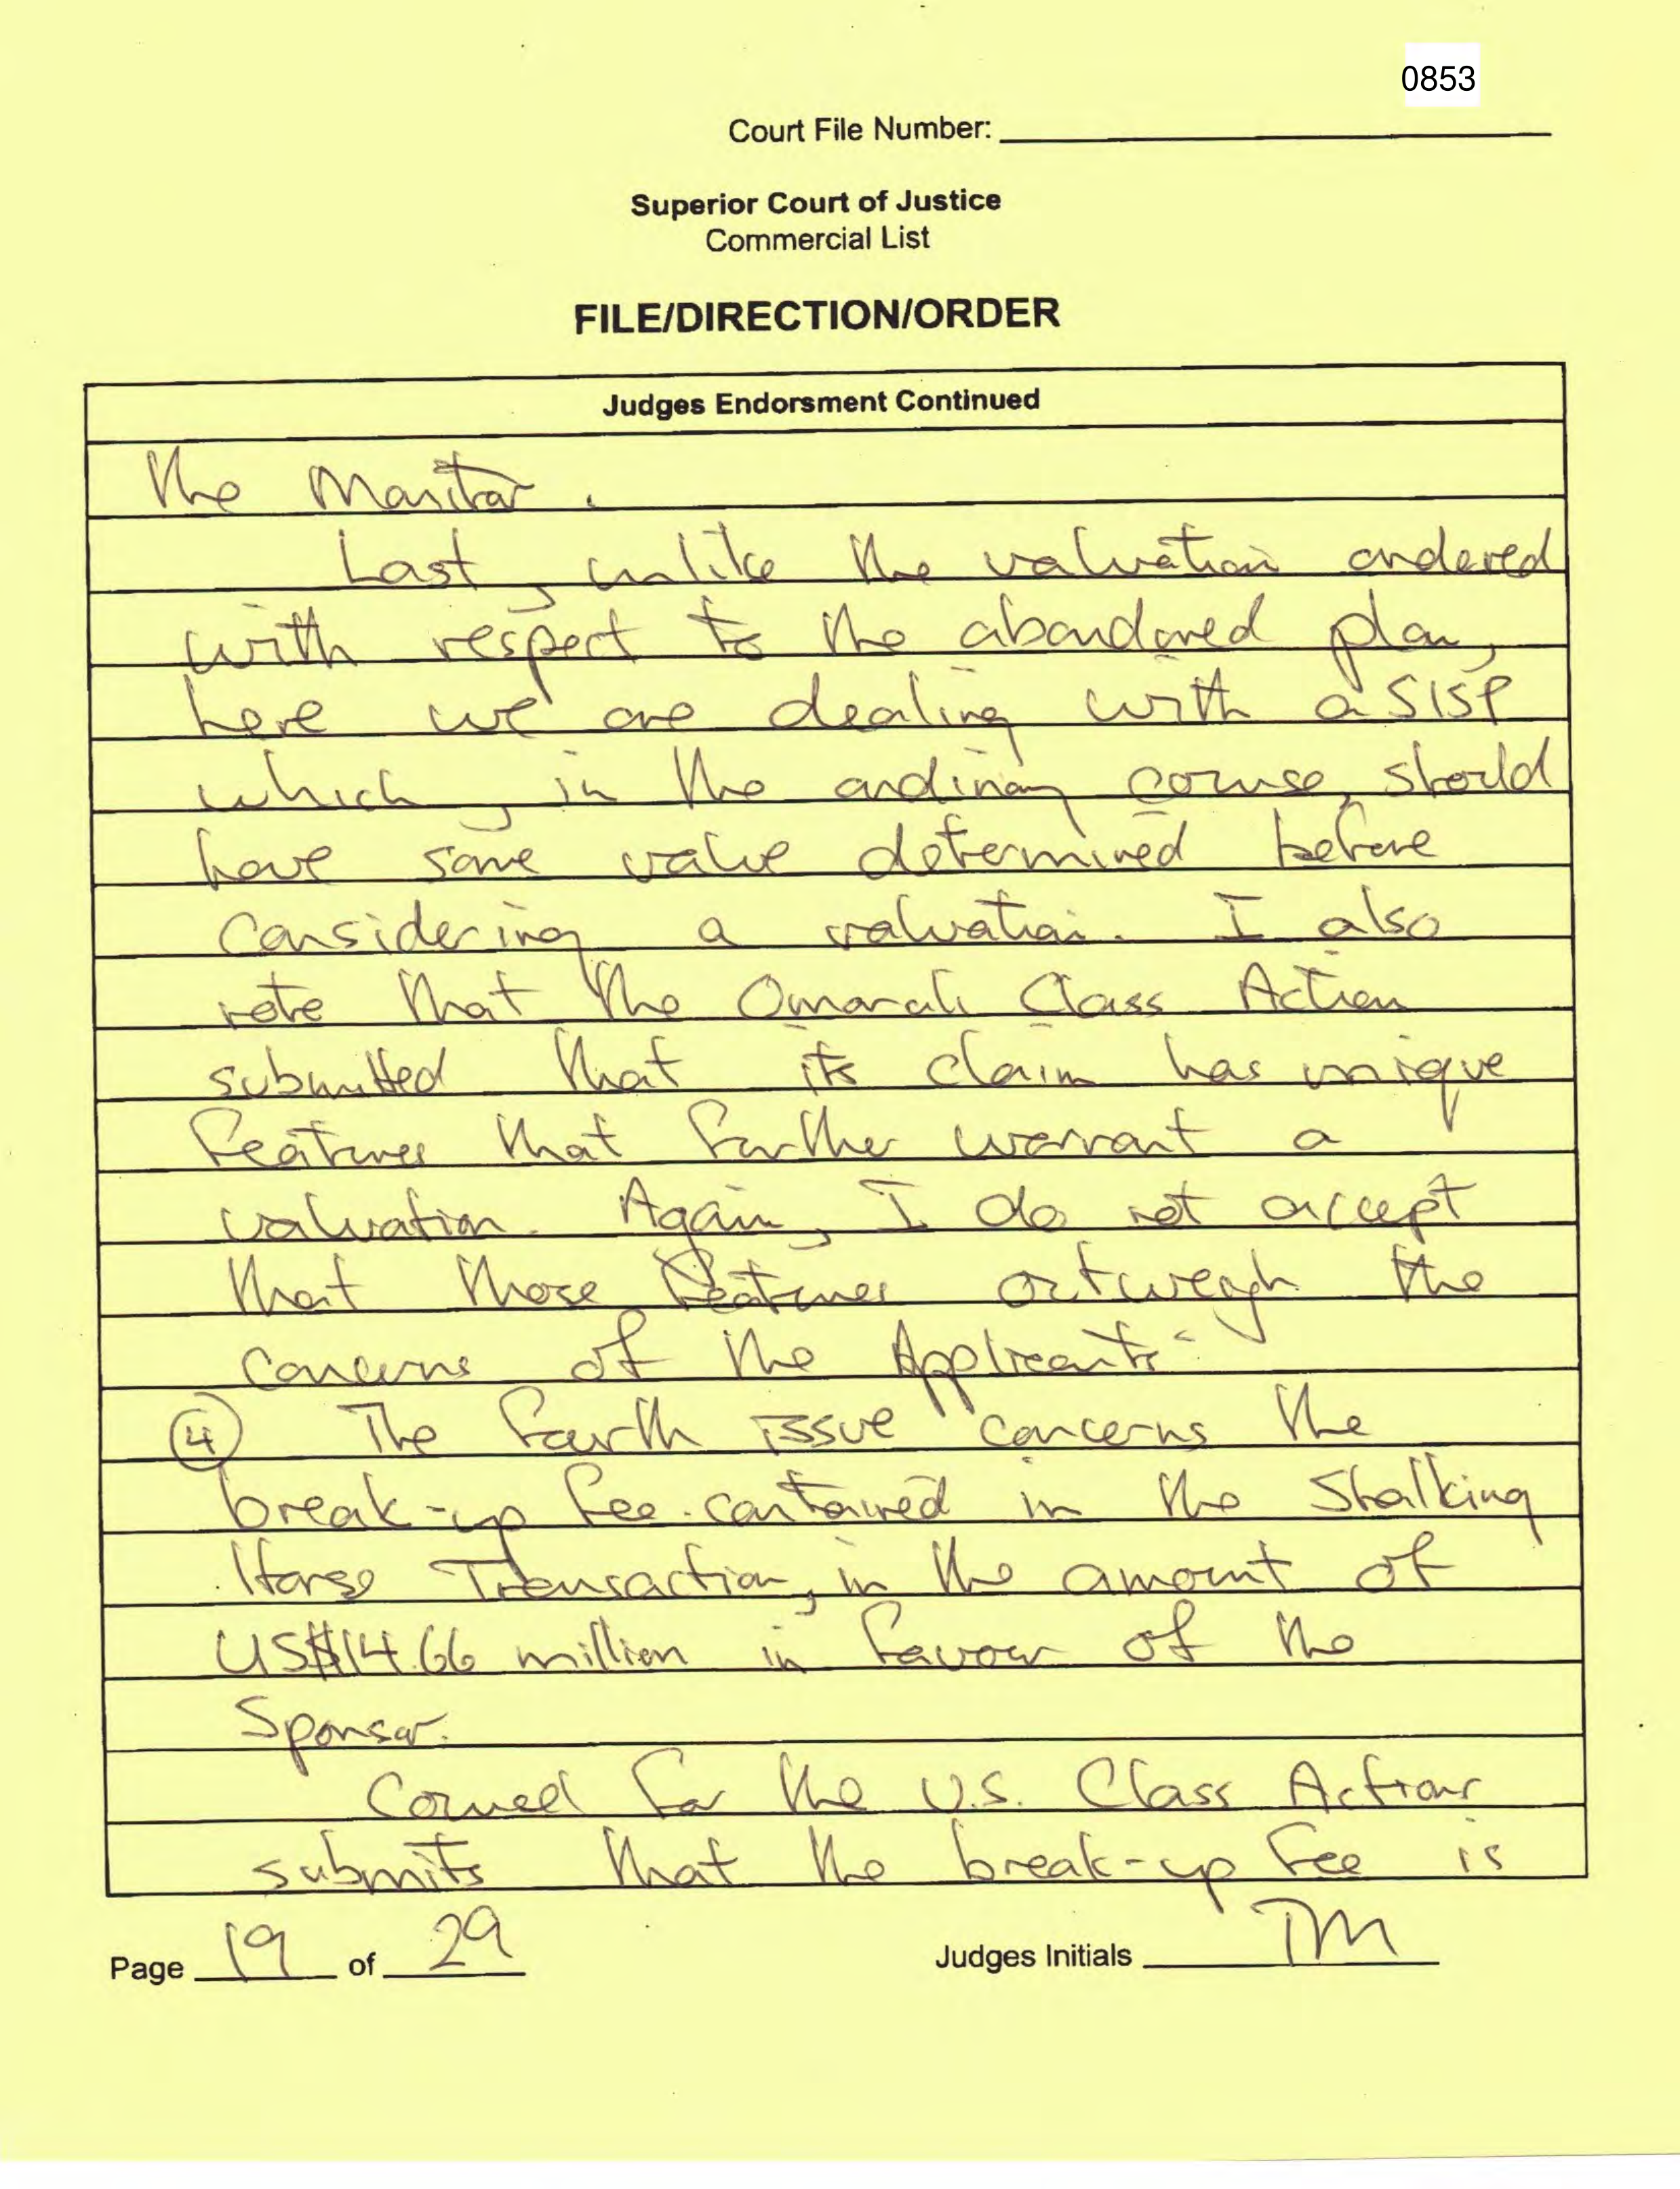 0853
Court File Number:
Superior Court of Justice
Commercial List
FILE/DIRECTION/ORDER
Judges Endorsment Continued
the Monitor.
Last, unlike the valuation ordered
with respect to the abandoned plan,
here we are dealing with a SISP
which, in the ordinary course, should
have some value determined before
considering a valuation. I also
note that the Omarali Class Action
submitted that its claim has unique
features that further warrant a
valuation. Again, I do not accept
that those features outweigh the
concerns of the Applicants.
④ The fourth issue concerns the
break-up fee contained in the Stalking
Horse Transaction, in the amount of
US$14.66 million in favour of the
Sponsor.
Counsel for the U.S. Class Actions
submits that the break-up fee is
Page 19 of 29
Judges Initials TM